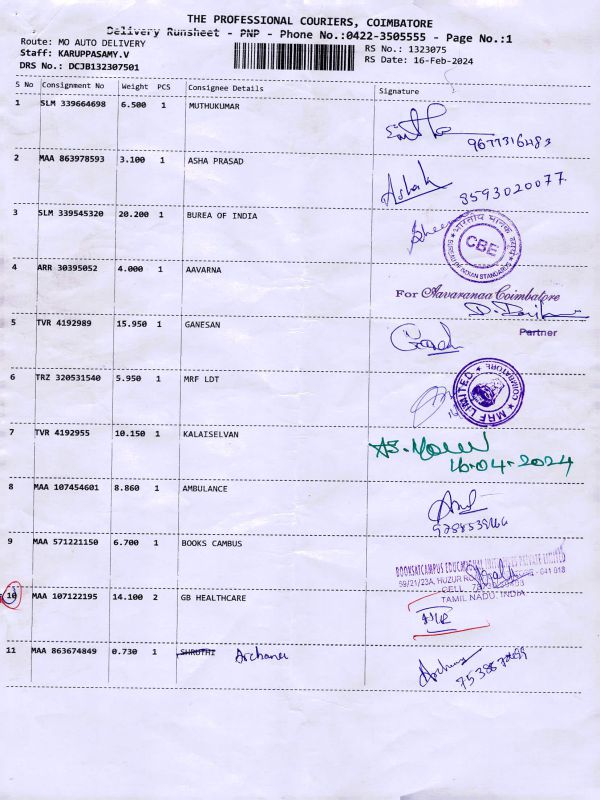 THE PROFESSIONAL COURIERS, COIMBATORE
Delivery Runsheet - PNP - Phone No.:0422-3505555 - Page No.:1
Route: MO AUTO DELIVERY
RS No.: 1323075
Staff: KARUPPASAMY.V
RS Date: 16-Feb-2024
DRS No.: DCJB132307501
S No Consignment No Weight PCS Consignee Details Signature
1 SLM 339664698 6.500 1 MUTHUKUMAR
9677316483
2 MAA 863978593 3.100 1 ASHA PRASAD
3593020077
3 SLM 339545320 20.200 1 BUREA OF INDIA
भारतीय मानक ब्यूरो
CBE
BUREAU OF INDIAN STANDARDS
4 ARR 30395052 4.000 1 AAVARNA
For Aavaranaa Coimbatore
Partner
5 TVR 4192989 15.950 1 GANESAN
6 TRZ 320531540 5.950 1 MRF LDT
MRF LIMITED ★ COIMBATORE ★
7 TVR 4192955 10.150 1 KALAISELVAN
16-04-2024
8 MAA 107454601 8.860 1 AMBULANCE
9 MAA 571221150 6.700 1 BOOKS CAMBUS
BOOKSATCAMPUS PRIVATE LIMITED
59/21/23A, HUZUR 641 018
CELL
TAMIL NADU, INDIA
10 MAA 107122195 14.100 2 GB HEALTHCARE
11 MAA 863674849 0.730 1 SHRUTHI Archana